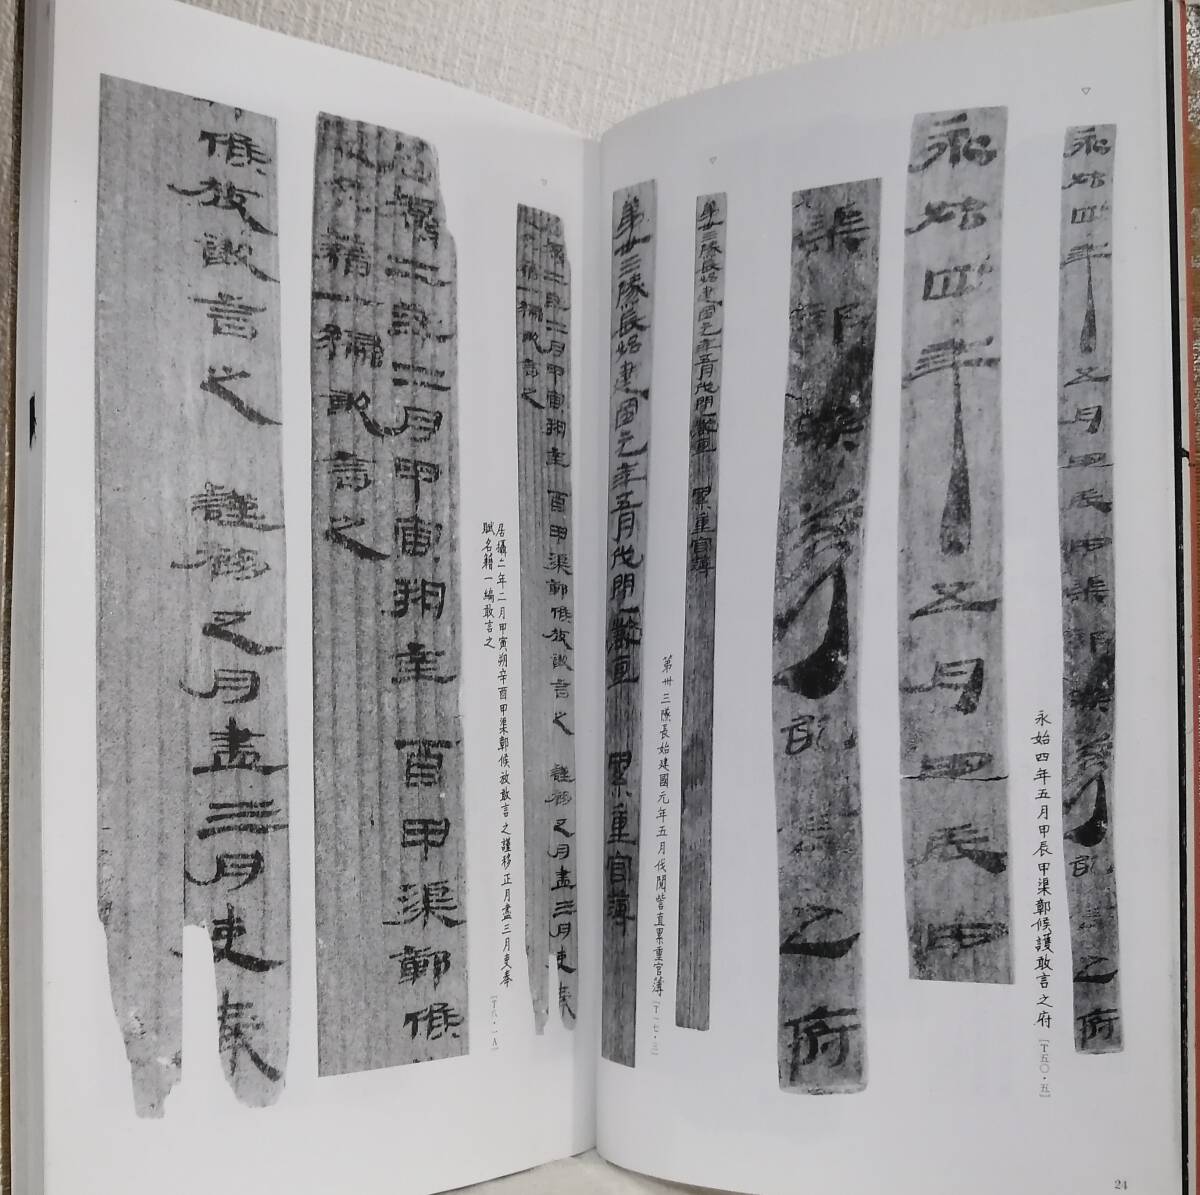 永始四年五月甲辰甲渠鄣候護敢言之府
[T五〇・五]
第卅三隊長始建國元年五月伐閱訾直累重官簿
[T一七・三]
居攝二年二月甲寅朔辛酉甲渠鄣候放敢言之謹移正月盡三月吏奉
賦名籍一編敢言之
[T八・一A]
24